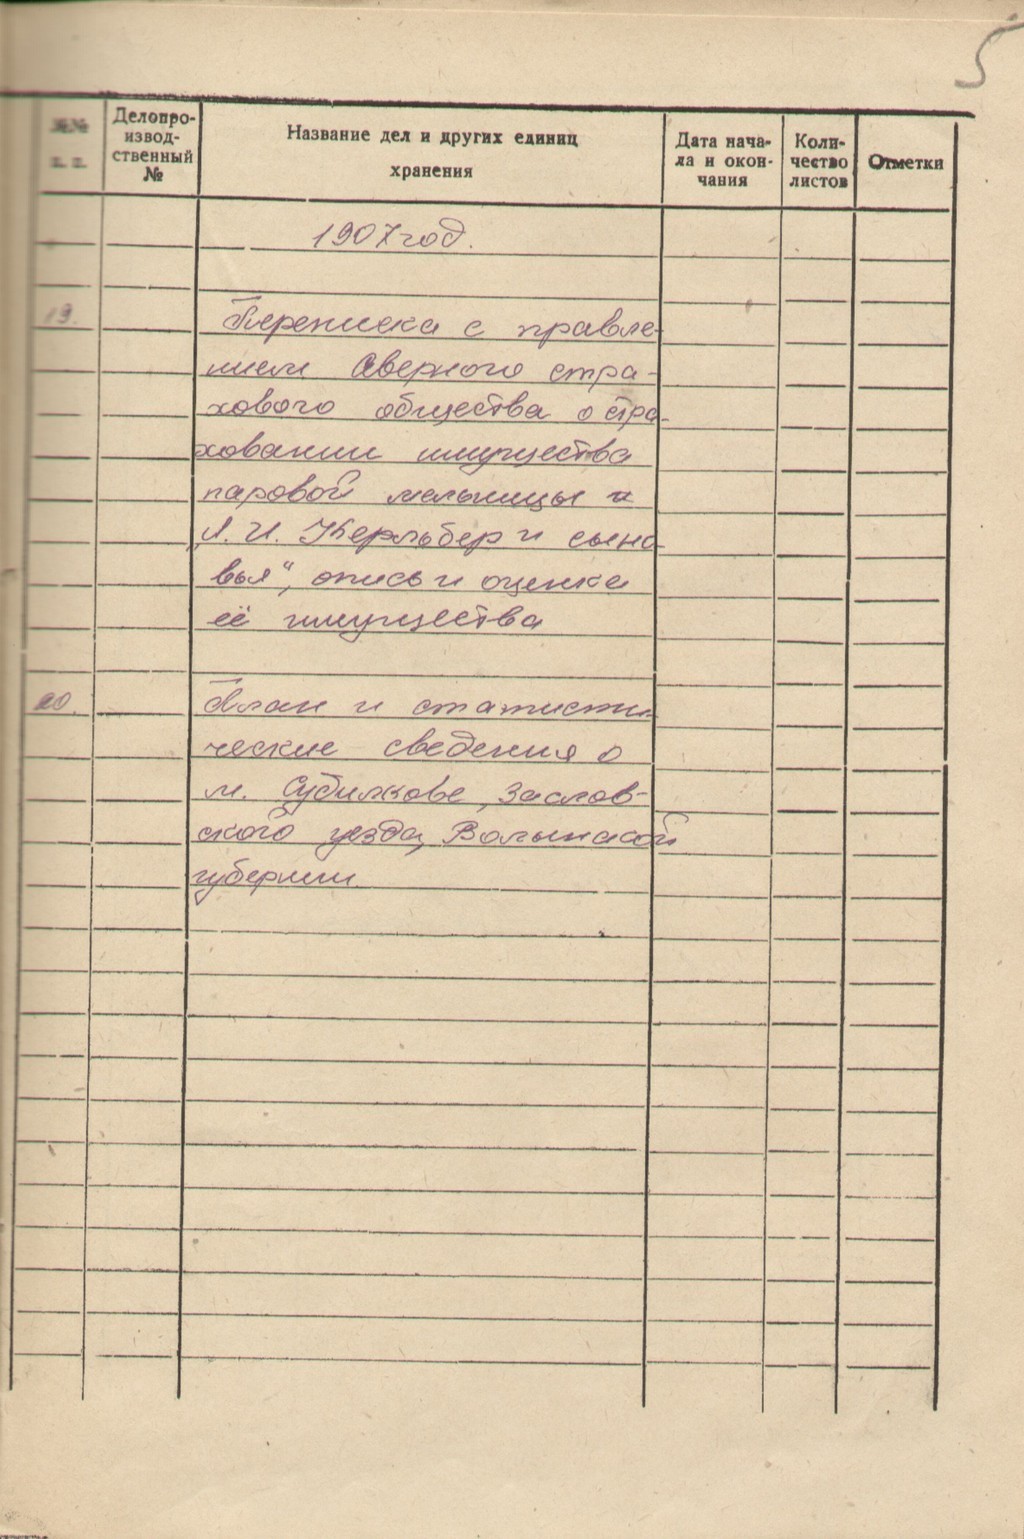 5
№№ п. п.
Делопро-
извод-
ственный
№
Название дел и других единиц
хранения
Дата нача-
ла и окон-
чания
Коли-
чество
листов
Отметки
1907 год.
19.
Переписка с правле-
нием Северного стра-
хового общества о стра-
ховании имущества
паровой мельницы
И. Керльбер и сыно-
вья", опись и оценка
её имущества
20.
План и статисти-
ческие сведения о
м. Судилкове, Заслав-
ского уезда, Волынской
губернии